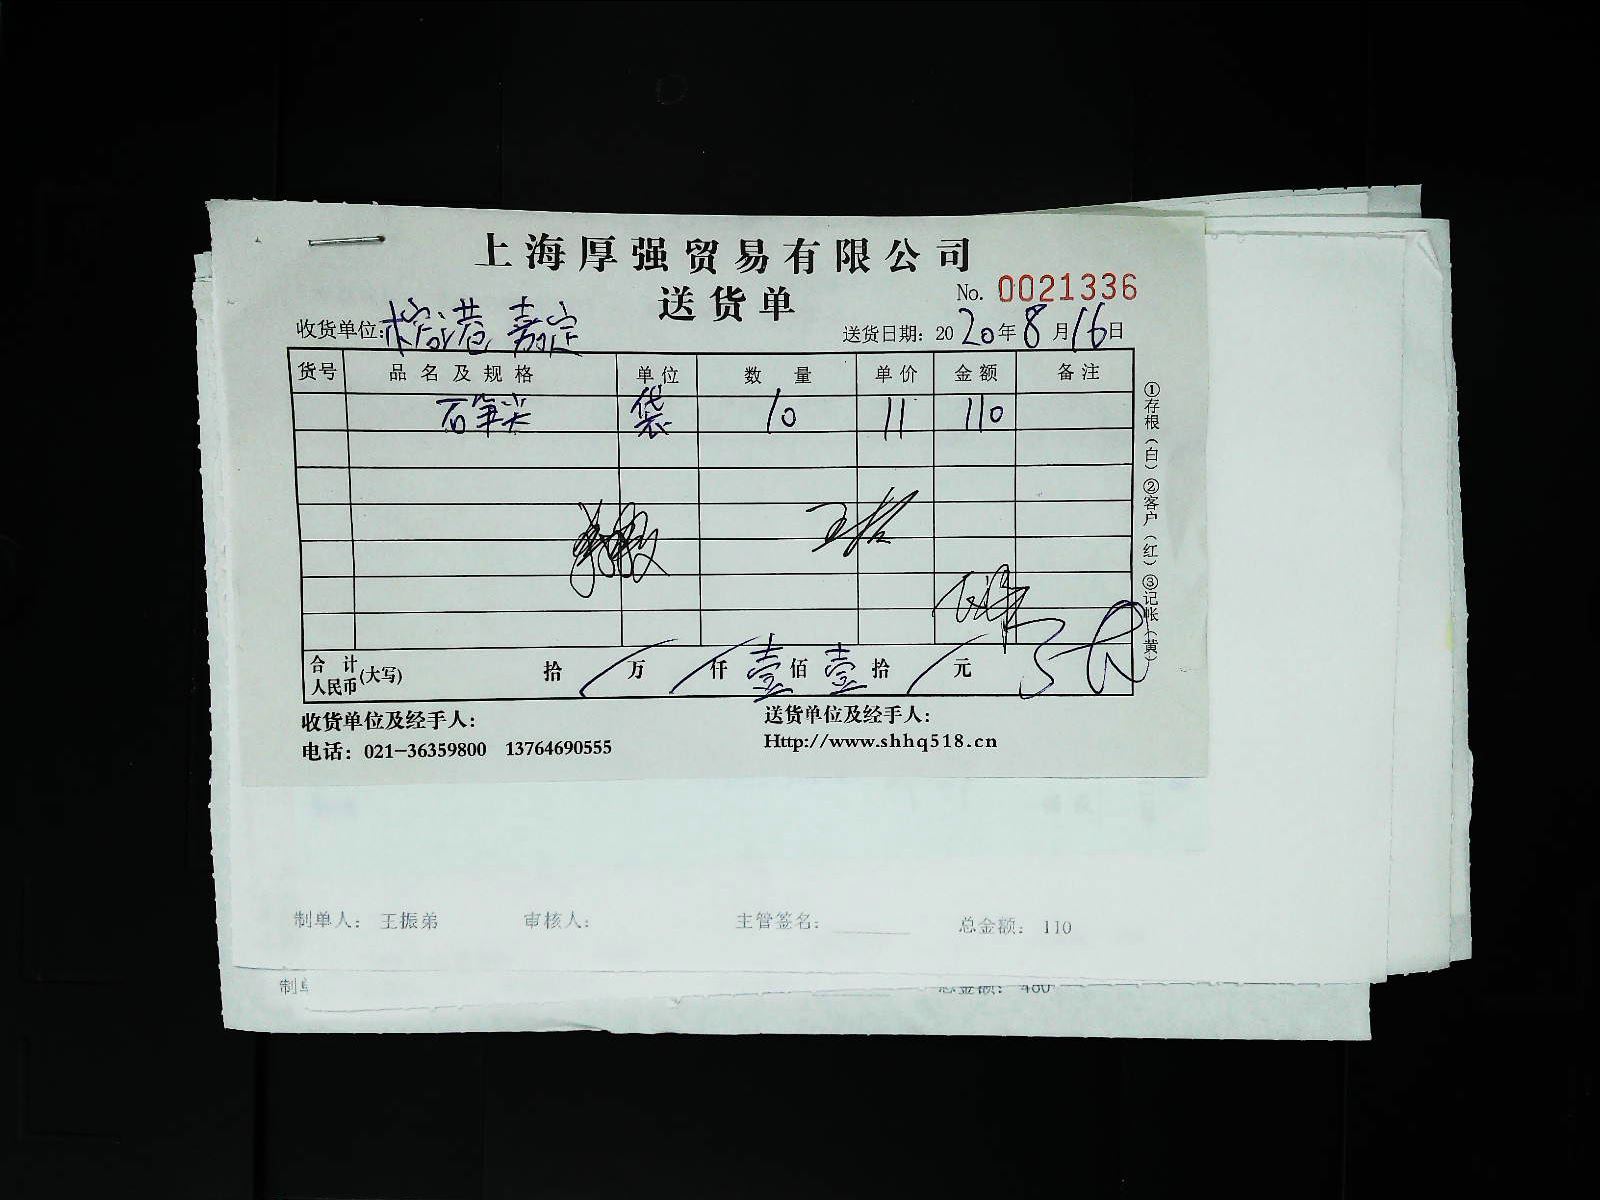 上海厚强贸易有限公司
送货单
No. 0021336
收货单位: 榕港 嘉定
送货日期: 2020年8月16日
货号 品名及规格 单位 数量 单价 金额 备注
石笔尖 袋 10 11 110
合计人民币(大写) 拾 / 万 / 仟 壹 佰 壹 拾 / 元
收货单位及经手人:
送货单位及经手人:
电话: 021-36359800 13764690555
Http://www.shhq518.cn
①存根(白)②客户(红)③记帐(黄)
制单人: 王振弟 审核人: 主管签名: 总金额: 110
制单 总金额: 460